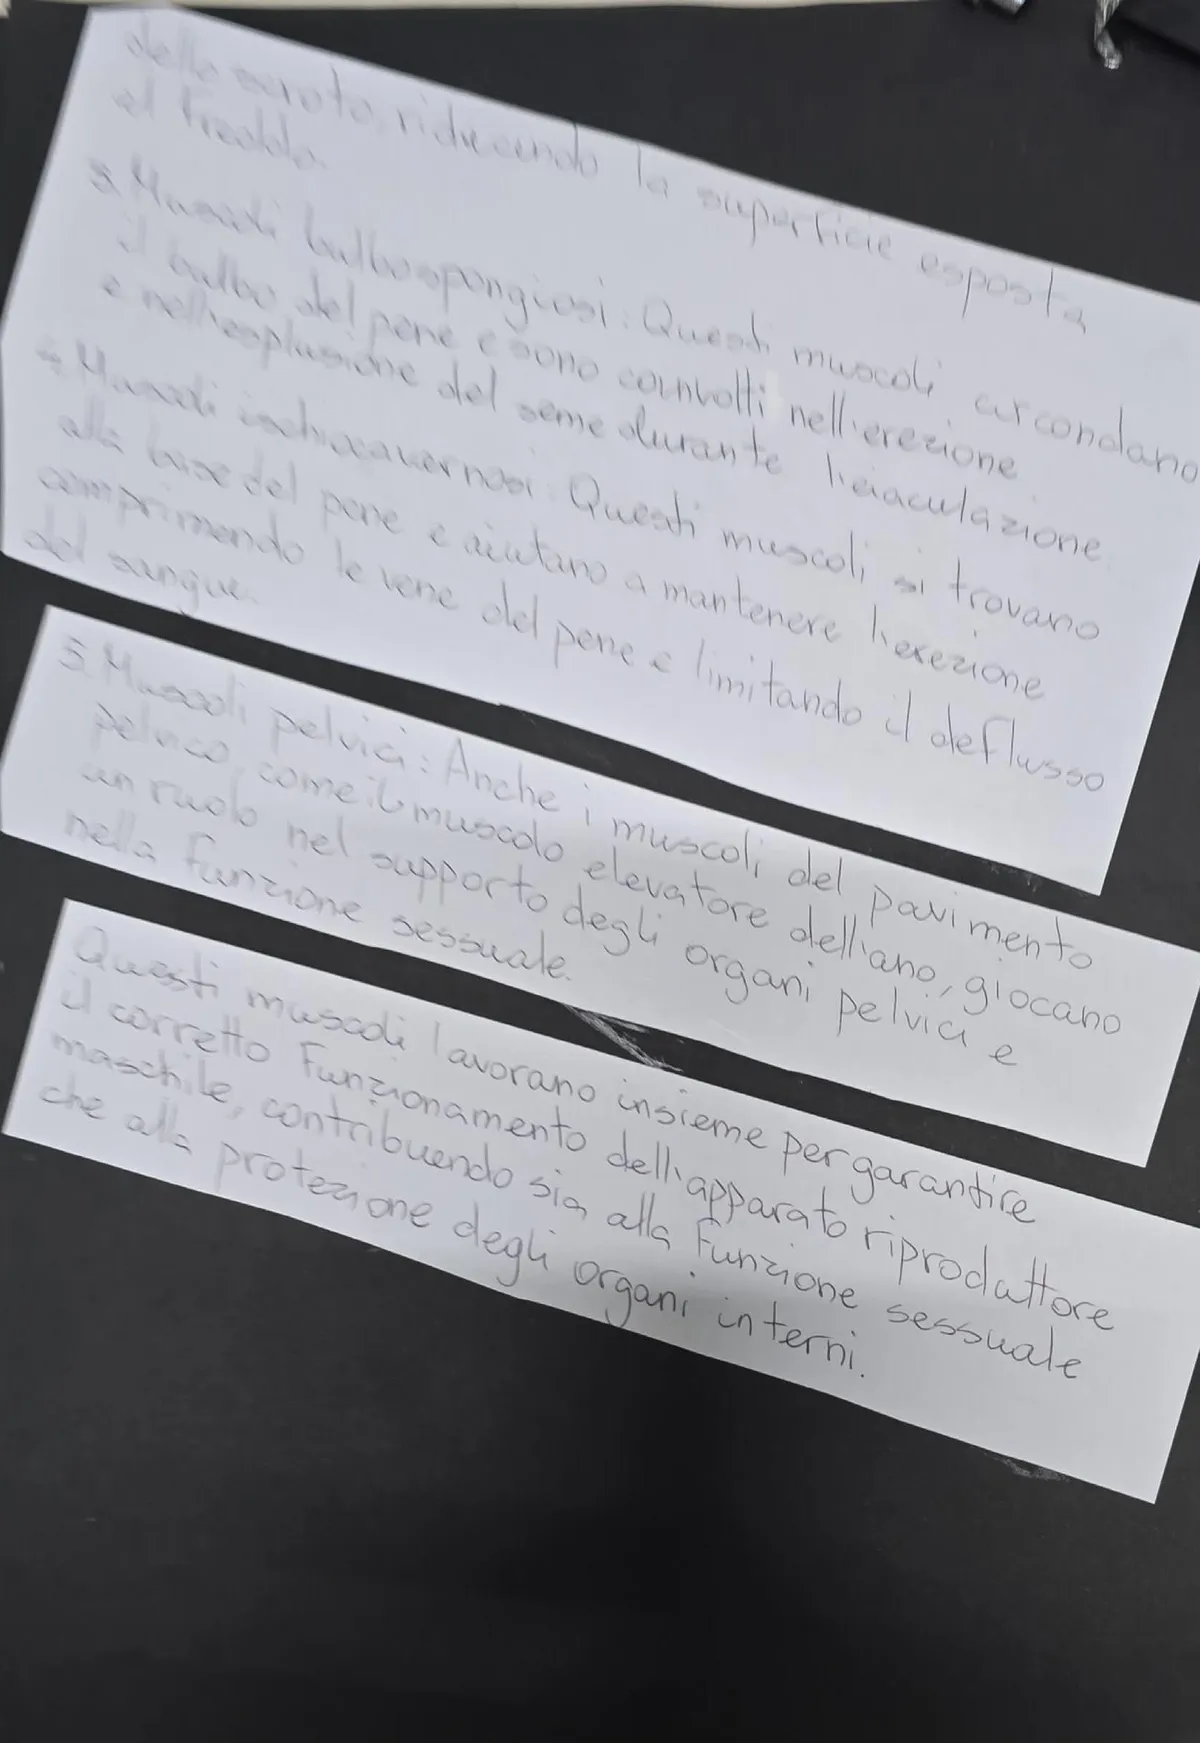 dello scroto, riducendo la superficie esposta
al freddo.
3. Muscoli bulbospongiosi: Questi muscoli circondano
il bulbo del pene e sono coinvolti nell'erezione
e nell'esplusione del seme durante l'eiaculazione.
4. Muscoli ischiocavernosi: Questi muscoli si trovano
alla base del pene e aiutano a mantenere l'erezione
comprimendo le vene del pene e limitando il deflusso
del sangue.
5. Muscoli pelvici: Anche i muscoli del pavimento
pelvico, come il muscolo elevatore dell'ano, giocano
un ruolo nel supporto degli organi pelvici e
nella funzione sessuale.
Questi muscoli lavorano insieme per garantire
il corretto funzionamento dell'apparato riproduttore
maschile, contribuendo sia alla funzione sessuale
che alla protezione degli organi interni.